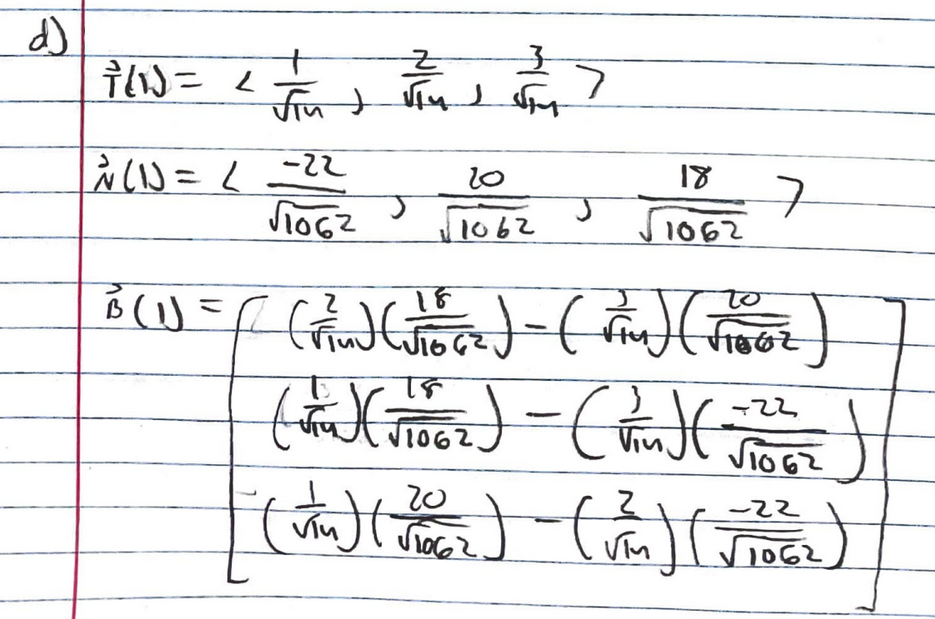 d)
T⃗(1) = < 1/√14 , 2/√14 , 3/√14 >
N⃗(1) = < -22/√1062 , 20/√1062 , 18/√1062 >
B⃗(1) = [ (2/√14)(18/√1062) - (3/√14)(20/√1062)
(1/√14)(18/√1062) - (3/√14)(-22/√1062)
(1/√14)(20/√1062) - (2/√14)(-22/√1062) ]